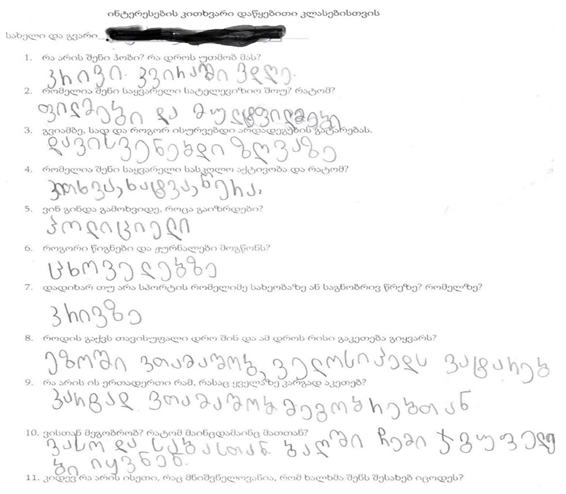 ინტერესების კითხვარი დაწყებითი კლასებისთვის
სახელი და გვარი
1. რა არის შენი ჰობი? რა დროს უთმობ მას?
კრივი. კვირაში 3დღე.
2. რომელია შენი საყვარელი სატელევიზიო შოუ? რატომ?
ფილმები და მულტფილმები
3. გვიამბე, სად და როგორ ისურვებდი არდადეგების გატარებას.
დავისვენებდი ზღვაზე
4. რომელია შენი საყვარელი სასკოლო აქტივობა და რატომ?
კითხვა, ხატვა, წერა.
5. ვინ გინდა გამოხვიდე, როცა გაიზრდები?
პოლიციელი
6. როგორი წიგნები და ჟურნალები მოგწონს?
ცხოველებზე
7. დადიხარ თუ არა სპორტის რომელიმე სახეობაზე ან საგნობრივ წრეზე? რომელზე?
კრივზე
8. როდის გაქვს თავისუფალი დრო შინ და ამ დროს რისი გაკეთება გიყვარს?
ეზოში ვთამაშობ, ველოსიპედს ვატარებ
9. რა არის ის ერთადერთი რამ, რასაც ყველაზე კარგად აკეთებ?
კარგად ვთამაშობ მეგობრებთან
10. ვისთან მეგობრობ? რატომ მაინცდამაინც მათთან?
ვასო და საბასთან ბაღში ჩემი ჯგუფელე
ბი იყვნენ.
11. კიდევ რა არის ისეთი, რაც მნიშვნელოვანია, რომ ხალხმა შენს შესახებ იცოდეს?